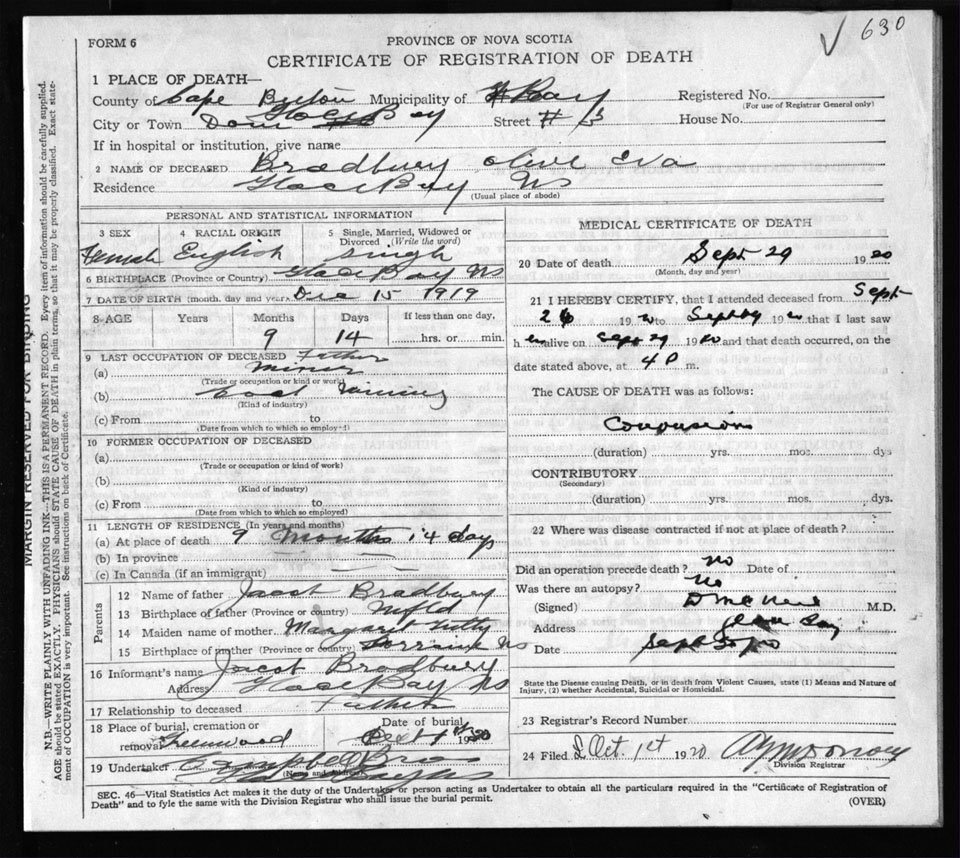 √ 630
FORM 6
PROVINCE OF NOVA SCOTIA
CERTIFICATE OF REGISTRATION OF DEATH
1 PLACE OF DEATH—
County of Cape Breton Municipality of Registered No.
(For use of Registrar General only)
City or Town Dom # 6 Glace Bay Street # 13 House No.
If in hospital or institution, give name
2 NAME OF DECEASED Bradbury Olive Eva
Residence Glace Bay NS
(Usual place of abode)
PERSONAL AND STATISTICAL INFORMATION
3 SEX 4 RACIAL ORIGIN 5 Single, Married, Widowed or Divorced (Write the word)
Female English Single
6 BIRTHPLACE (Province or Country) Glace Bay NS
7 DATE OF BIRTH (month, day and year) Dec 15 1919
8 AGE Years Months Days If less than one day,
9 14 hrs. or min.
9 LAST OCCUPATION OF DECEASED Father
(a) Miner
(Trade or occupation or kind or work)
(b) Coal mining
(Kind of industry)
(c) From to
(Date from which to which so employed)
10 FORMER OCCUPATION OF DECEASED
(a)
(Trade or occupation or kind of work)
(b)
(Kind of industry)
(c) From to
(Date from which to which so employed)
11 LENGTH OF RESIDENCE (In years and months)
(a) At place of death 9 Months 14 days
(b) In province
(c) In Canada (if an immigrant)
Parents
12 Name of father Jacob Bradbury
13 Birthplace of father (Province or country) Nfld
14 Maiden name of mother Margaret
15 Birthplace of mother (Province or country) Lorraine NS
16 Informant's name Jacob Bradbury
Address Glace Bay NS
17 Relationship to deceased Father
18 Place of burial, cremation or removal Greenwood Date of burial Oct 1st 1920
19 Undertaker Campbell Bros
(Name and Address) Glace Bay NS
MEDICAL CERTIFICATE OF DEATH
20 Date of death Sept 29 1920
(Month, day and year)
21 I HEREBY CERTIFY, that I attended deceased from Sept
26 1920 to Sept 29 1920 that I last saw
h er alive on Sept 29 1920 and that death occurred, on the
date stated above, at 4 P m.
The CAUSE OF DEATH was as follows:
Convulsions
(duration) yrs. mos. dys
CONTRIBUTORY
(Secondary)
(duration) yrs. mos. dys.
22 Where was disease contracted if not at place of death?
Did an operation precede death? No Date of
Was there an autopsy? No
(Signed) D McNeil M.D.
Address Glace Bay
Date Sept 30 20
State the Disease causing Death, or in death from Violent Causes, state (1) Means and Nature of
Injury, (2) whether Accidental, Suicidal or Homicidal.
23 Registrar's Record Number
24 Filed Oct. 1st 1920
Division Registrar
SEC. 46—Vital Statistics Act makes it the duty of the Undertaker or person acting as Undertaker to obtain all the particulars required in the "Certificate of Registration of
Death" and to fyle the same with the Division Registrar who shall issue the burial permit. (OVER)
MARGIN RESERVED FOR BINDING
N.B.—WRITE PLAINLY WITH UNFADING INK—THIS IS A PERMANENT RECORD. Every item of information should be carefully supplied.
AGE should be stated EXACTLY. PHYSICIANS should STATE CAUSE OF DEATH in plain terms, so that it may be properly classified. Exact statement of OCCUPATION is very important. See instructions on back of Certificate.